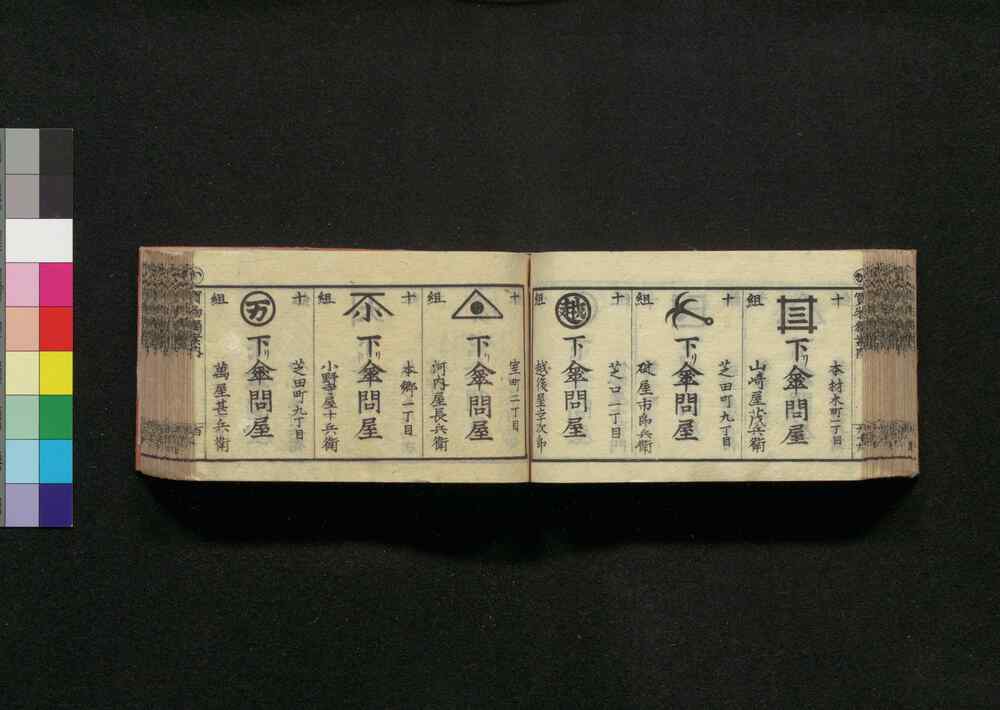 十
組
本材木町二丁目
下リ傘問屋
山崎屋茂兵衛
十
組
芝田町九丁目
下リ傘問屋
屋市郎兵衛
十
組
芝口二丁目
越
下リ傘問屋
越後屋幸次郎
十
組
室町二丁目
下リ傘問屋
河内屋長兵衛
十
組
本郷一丁目
下リ傘問屋
小野屋十兵衛
十
組
芝田町九丁目
万
下リ傘問屋
萬屋甚兵衛